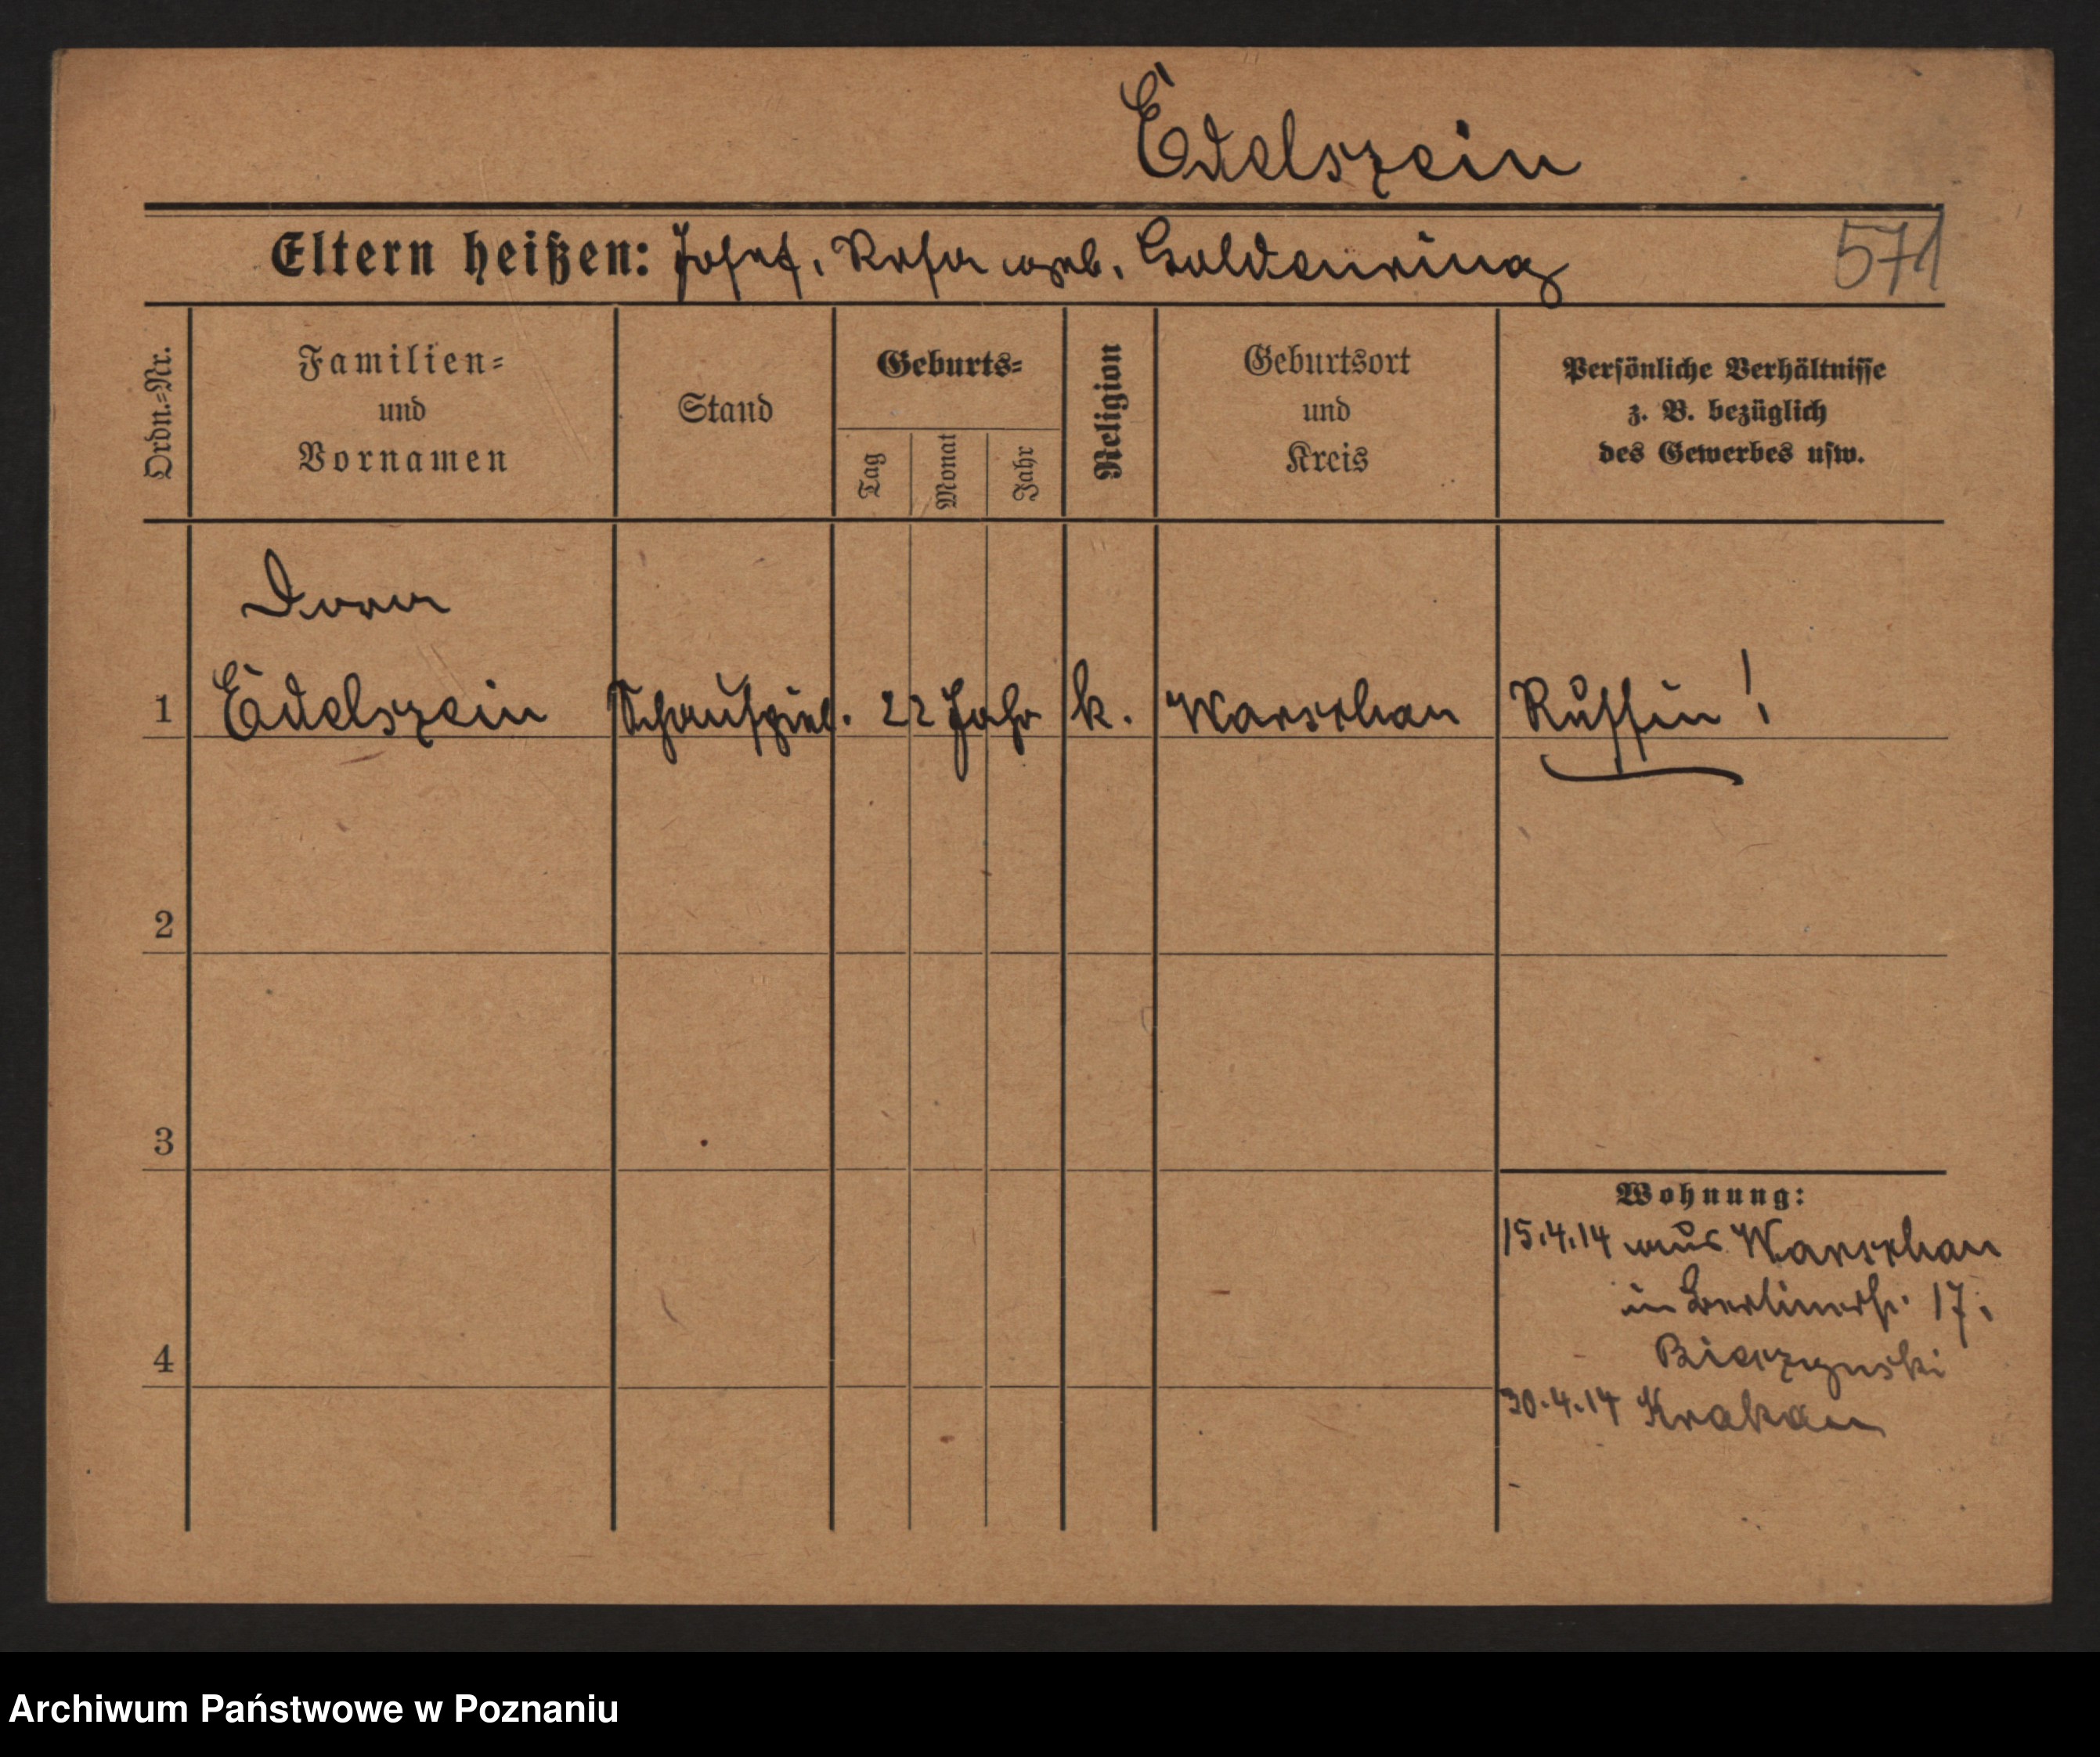 Edelszein
Eltern heißen: Josef, Rosa geb. Goldenring
571
Ordn.-Nr.
Familien-
und
Vornamen
Stand
Geburts-
Tag
Monat
Jahr
Religion
Geburtsort
und
Kreis
Persönliche Verhältnisse
z. B. bezüglich
des Gewerbes usw.
Dora
1 Edelszein Schauspiel. 22 Jahr k. Warschau Russin!
2
3
4
Wohnung:
15.4.14 aus Warschau
in Berlinerstr. 17.
30.4.14 Krakau
Archiwum Państwowe w Poznaniu